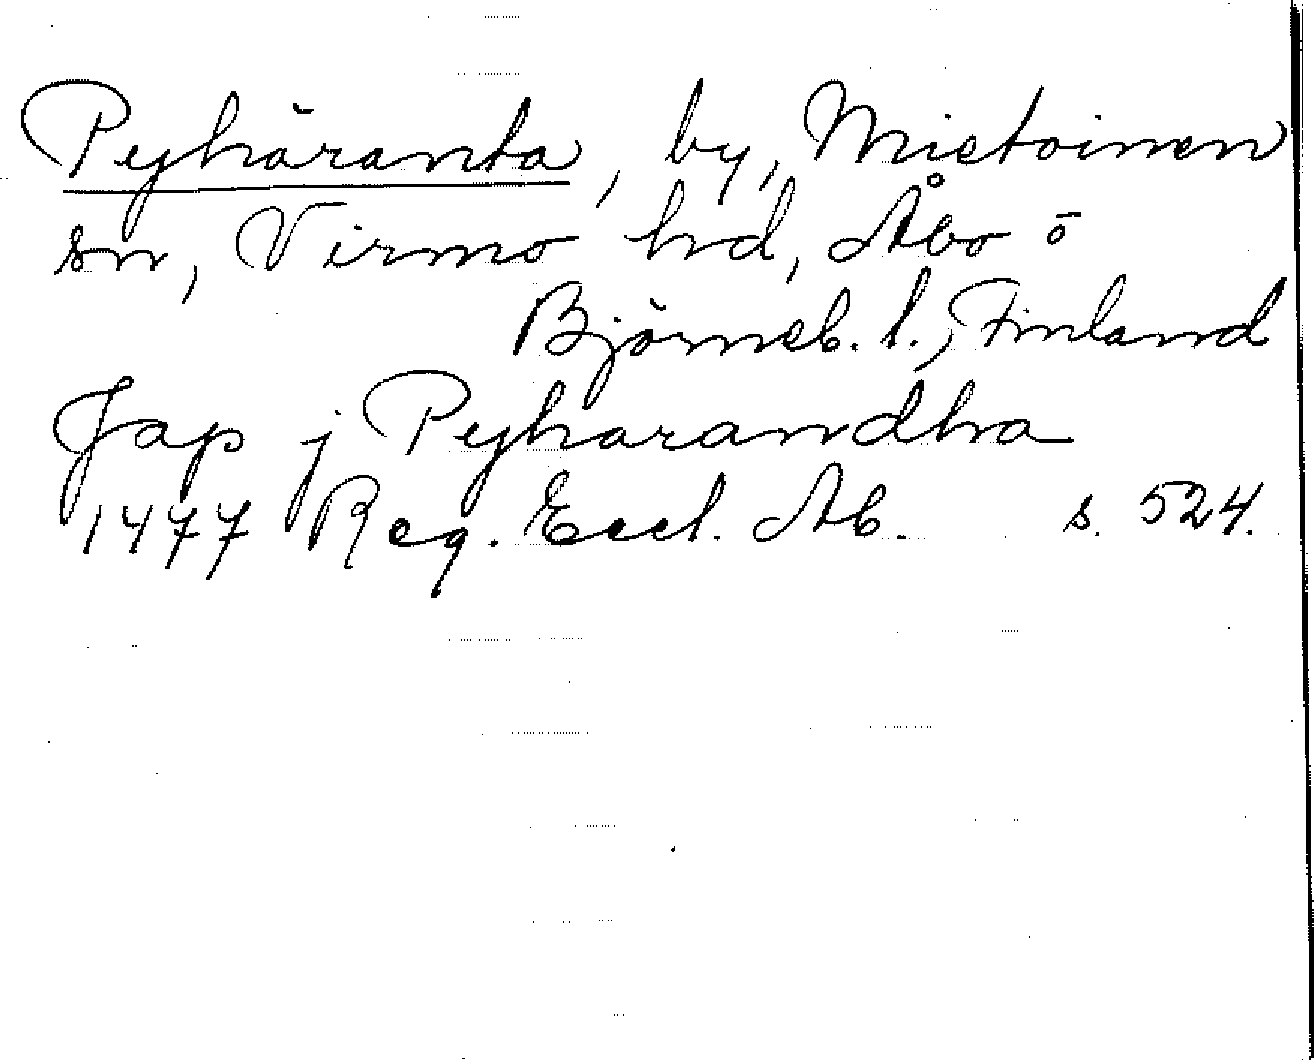 Pyhäranta, by, Mietoinen
sn, Virmo hd, Åbo o
Björneb. l., Finland
Jap j Pyharandha
1477 Reg. Eccl. Ab. s. 524.